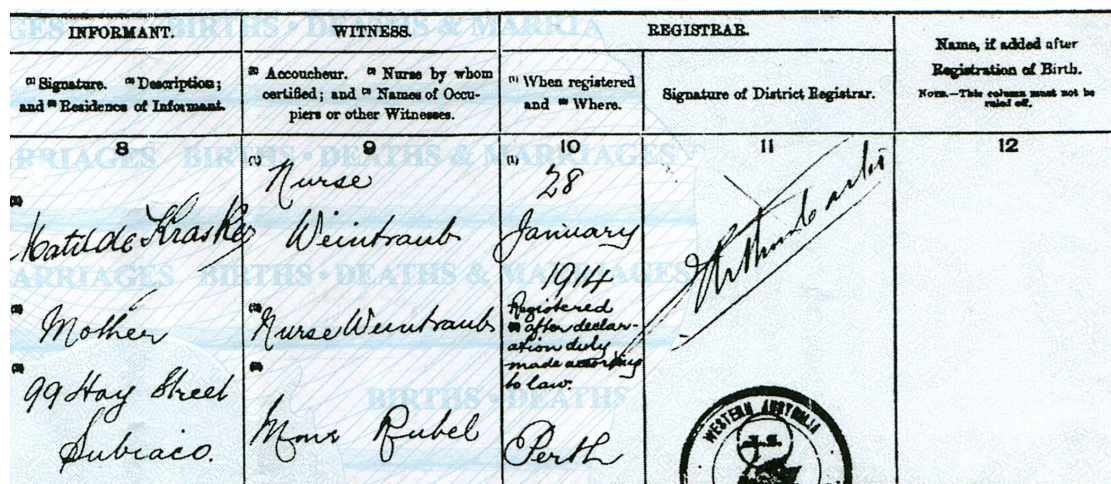 INFORMANT.
WITNESS.
REGISTRAR.
Name, if added after
Registration of Birth.
NOTE.—This column must not be
ruled off.
(1) Signature. (2) Description;
and (3) Residence of Informant.
(1) Accoucheur. (2) Nurse by whom
certified; and (3) Names of Occu-
piers or other Witnesses.
(1) When registered
and (2) Where.
Signature of District Registrar.
8
9
10
11
12
(1)
Matilde Krasker
(2)
Mother
(3)
99 Hay Street
Subiaco.
(1)
Nurse
Weintraub
(2)
Nurse Weintraub
(3)
Rubel
(1)
28
January
1914
Registered
(2) after declar-
ation duly
made according
to law.
Perth
WESTERN AUSTRALIA
BIRTHS • DEATHS & MARRIAGES
BIRTHS • DEATHS & MARRIAGES
BIRTHS • DEATHS